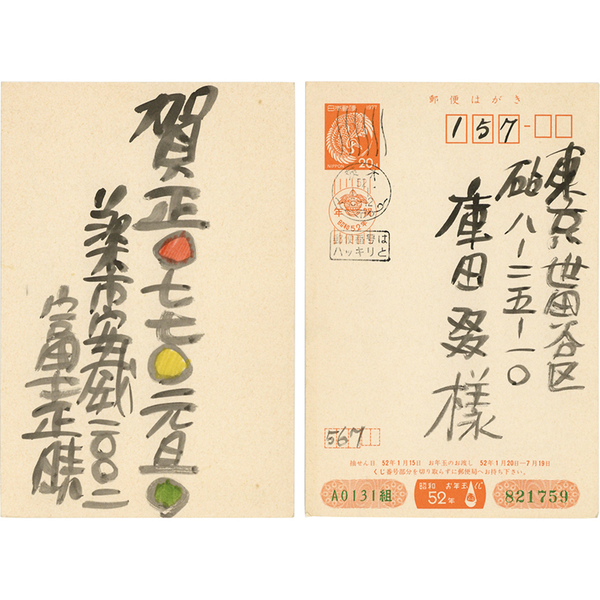 賀正〇七七〇元旦〇
茨木市安威
富士正晴
郵便はがき
日本郵便
20
NIPPON
157
東京世田谷区
砧八ー二五ー一〇
庫田叕様
昭和52年
郵便番号は
ハッキリと
567
抽せん日 52年1月15日 お年玉のお渡し 52年1月20日−7月19日
くじ番号部分を切り取らずに郵便局へお持ち下さい。
A0131組
昭和 お年玉くじ
52年
821759